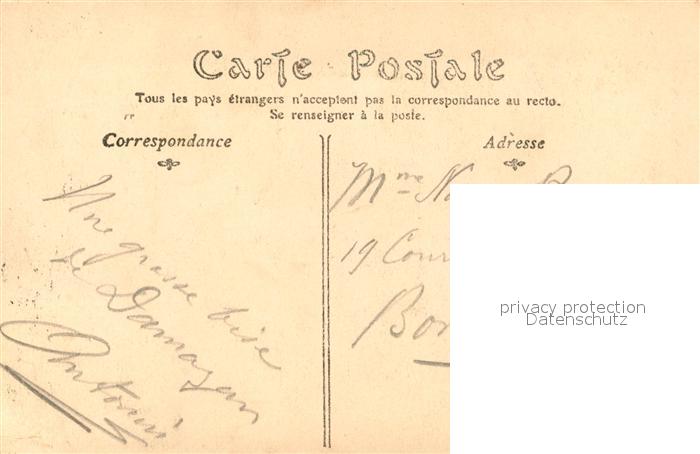 Carte Postale
Tous les pays étrangers n'acceptent pas la correspondance au recto.
Se renseigner à la poste.
Correspondance
Adresse
Une grosse bise
de Damazan
Antonin
Mme
19 Cour
Bor
privacy protection
Datenschutz